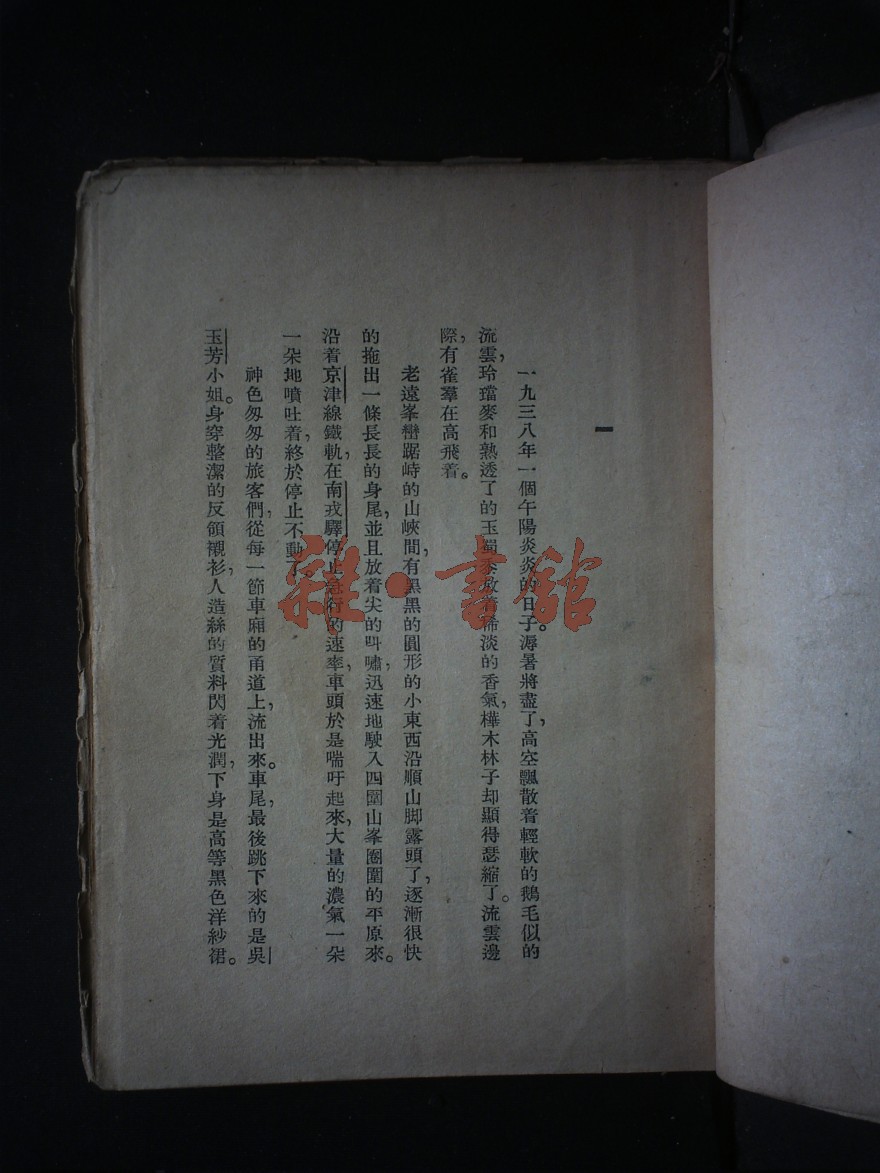 一
一九三八年一個午陽炎炎的日子。溽暑將盡了，高空飄散着輕軟的鵝毛似的
流雲，玲璫麥和熟透了的玉蜀黍放着稀淡的香氣，樺木林子却顯得瑟縮了。流雲邊
際，有雀羣在高飛着。
老遠峯巒踞峙的山峽間，有黑黑的圓形的小東西沿順山脚露頭了，逐漸很快
的拖出一條長長的身尾，並且放着尖的叫嘯，迅速地駛入四圍山峯圈圍的平原來。
沿着京津線鐵軌，在南戎驛停止急行的速率，車頭於是喘吁起來，大量的濃氣一朵
一朵地噴吐着，終於停止不動了。
神色匆匆的旅客們，從每一節車廂的甬道上，流出來。車尾，最後跳下來的是吳
玉芳小姐。身穿整潔的反領襯衫，人造絲的質料閃着光潤，下身是高等黑色洋紗裙。
雜·書館